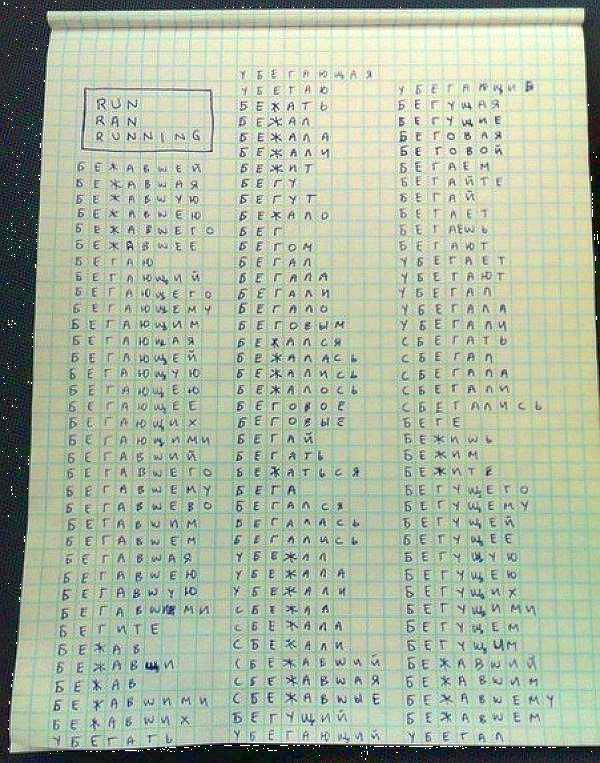 RUN
RAN
RUNNING
БЕЖАВШЕЙ
БЕЖАВШАЯ
БЕЖАВШУЮ
БЕЖАВШЕЮ
БЕЖАВШЕГО
БЕЖАВШЕЕ
БЕГАЮ
БЕГАЮЩИЙ
БЕГАЮЩЕГО
БЕГАЮЩЕМУ
БЕГАЮЩИМ
БЕГАЮЩАЯ
БЕГАЮЩЕЙ
БЕГАЮЩУЮ
БЕГАЮЩЕЮ
БЕГАЮЩЕЕ
БЕГАЮЩИХ
БЕГАЮЩИМИ
БЕГАВШИЙ
БЕГАВШЕГО
БЕГАВШЕМУ
БЕГАВШЕВО
БЕГАВШИМ
БЕГАВШЕМ
БЕГАВШАЯ
БЕГАВШЕЮ
БЕГАВШУЮ
БЕГАВШИМИ
БЕГИТЕ
БЕЖАВ
БЕЖАВЩИ
БЕЖАВ
БЕЖАВШИМИ
БЕЖАВШИХ
УБЕГАТЬ
УБЕГАЮЩАЯ
УБЕГАЮ
БЕЖАТЬ
БЕЖАЛ
БЕЖАЛА
БЕЖАЛИ
БЕЖИТ
БЕГУ
БЕГУТ
БЕЖАЛО
БЕГ
БЕГОМ
БЕГАЛ
БЕГАЛА
БЕГАЛИ
БЕГАЛО
БЕГОВЫМ
БЕЖАЛСЯ
БЕЖАЛАСЬ
БЕЖАЛИСЬ
БЕЖАЛОСЬ
БЕГОВОЕ
БЕГОВЫЕ
БЕГАЙ
БЕГАТЬ
БЕЖАТЬСЯ
БЕГА
БЕГАЛСЯ
БЕГАЛАСЬ
БЕГАЛИСЬ
УБЕЖАЛ
УБЕЖАЛА
УБЕЖАЛИ
СБЕЖАЛ
СБЕЖАЛА
СБЕЖАЛИ
СБЕЖАВШИЙ
СБЕЖАВШАЯ
СБЕЖАВШЫЕ
БЕГУЩИЙ
УБЕГАЮЩИЙ
УБЕГАЮЩИЕ
БЕГУЩАЯ
БЕГУЩИЕ
БЕГОВАЯ
БЕГОВОЙ
БЕГАЕМ
БЕГАЙТЕ
БЕГАЙ
БЕГАЕТ
БЕГАЕШЬ
БЕГАЮТ
УБЕГАЕТ
УБЕГАЮТ
УБЕГАЛ
УБЕГАЛА
УБЕГАЛИ
СБЕГАТЬ
СБЕГАЛ
СБЕГАЛА
СБЕГАЛИ
СБЕГАЛИСЬ
БЕГЕ
БЕЖИШЬ
БЕЖИМ
БЕЖИТЕ
БЕГУЩЕГО
БЕГУЩЕМУ
БЕГУЩЕЙ
БЕГУЩЕЕ
БЕГУЩУЮ
БЕГУЩЕЮ
БЕГУЩИХ
БЕГУЩИМИ
БЕГУЩЕМ
БЕГУЩЫМ
БЕЖАВШИЙ
БЕЖАВШИМ
БЕЖАВШЕМУ
БЕЖАВШЕМ
УБЕГАЛ